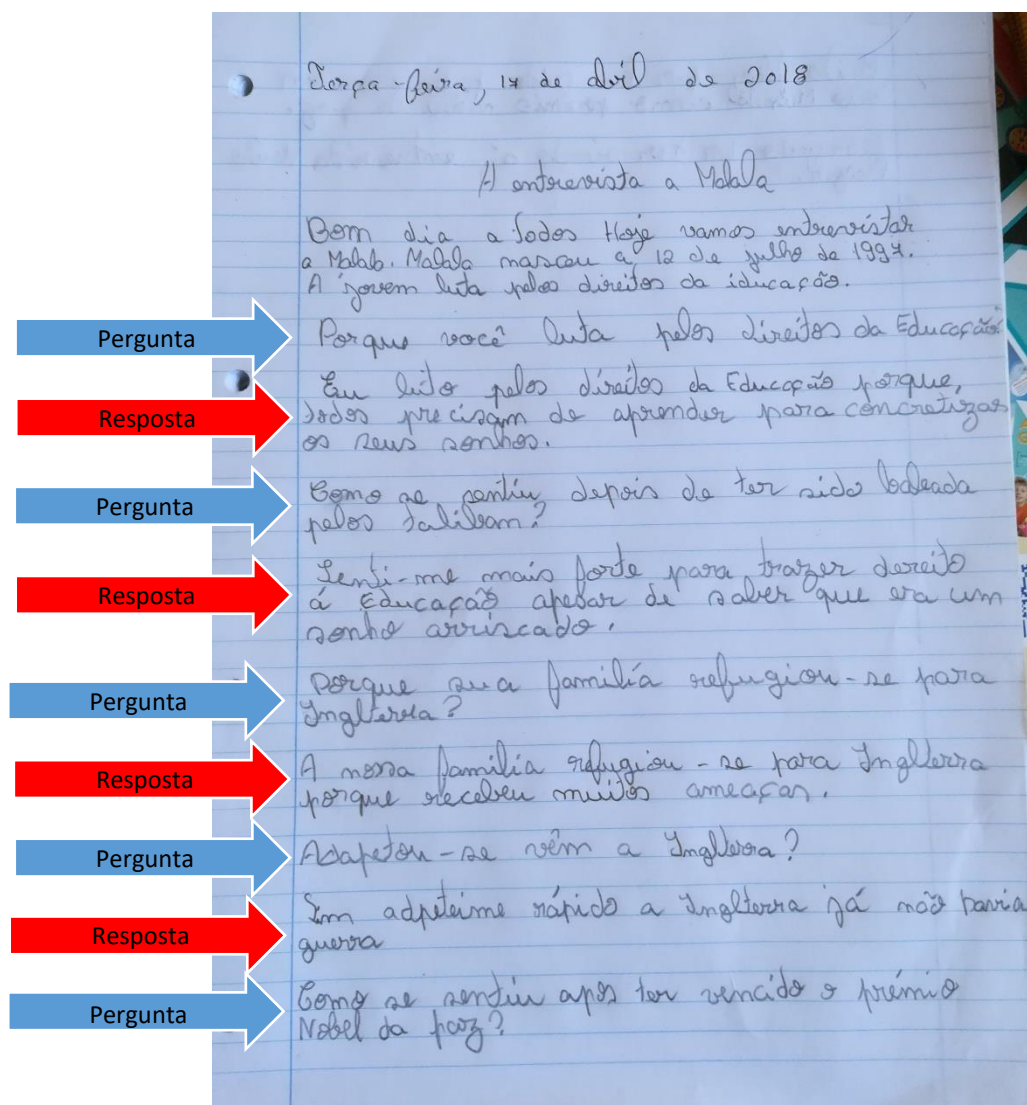 Terça-feira, 17 de Abril de 2018
A entrevista a Malala
Bom dia a todos Hoje vamos entrevistar
a Malala. Malala nasceu a 12 de julho de 1997.
A jovem luta pelos direitos da iducação.
Pergunta Porque você luta pelos direitos da Educação?
Eu luto pelos direitos da Educação porque,
Resposta todos precisam de aprender para concretizar
os seus sonhos.
Pergunta Como se sentiu depois de ter sido baleada
pelos talibam?
Senti-me mais forte para trazer dereito
Resposta á Educação apesar de saber que era um
sonho arriscado.
Pergunta Porque sua família refugiou-se para
Inglterra?
Resposta A nossa família refugiou-se para Inglterra
porque recebeu muitos ameaças.
Pergunta Adapetou-se vêm a Inglterra?
Sim adpeteime rápido a Inglterra já não havia
Resposta guerra
Pergunta Como se sentiu após ter vencido o prémio
Nobel da paz?